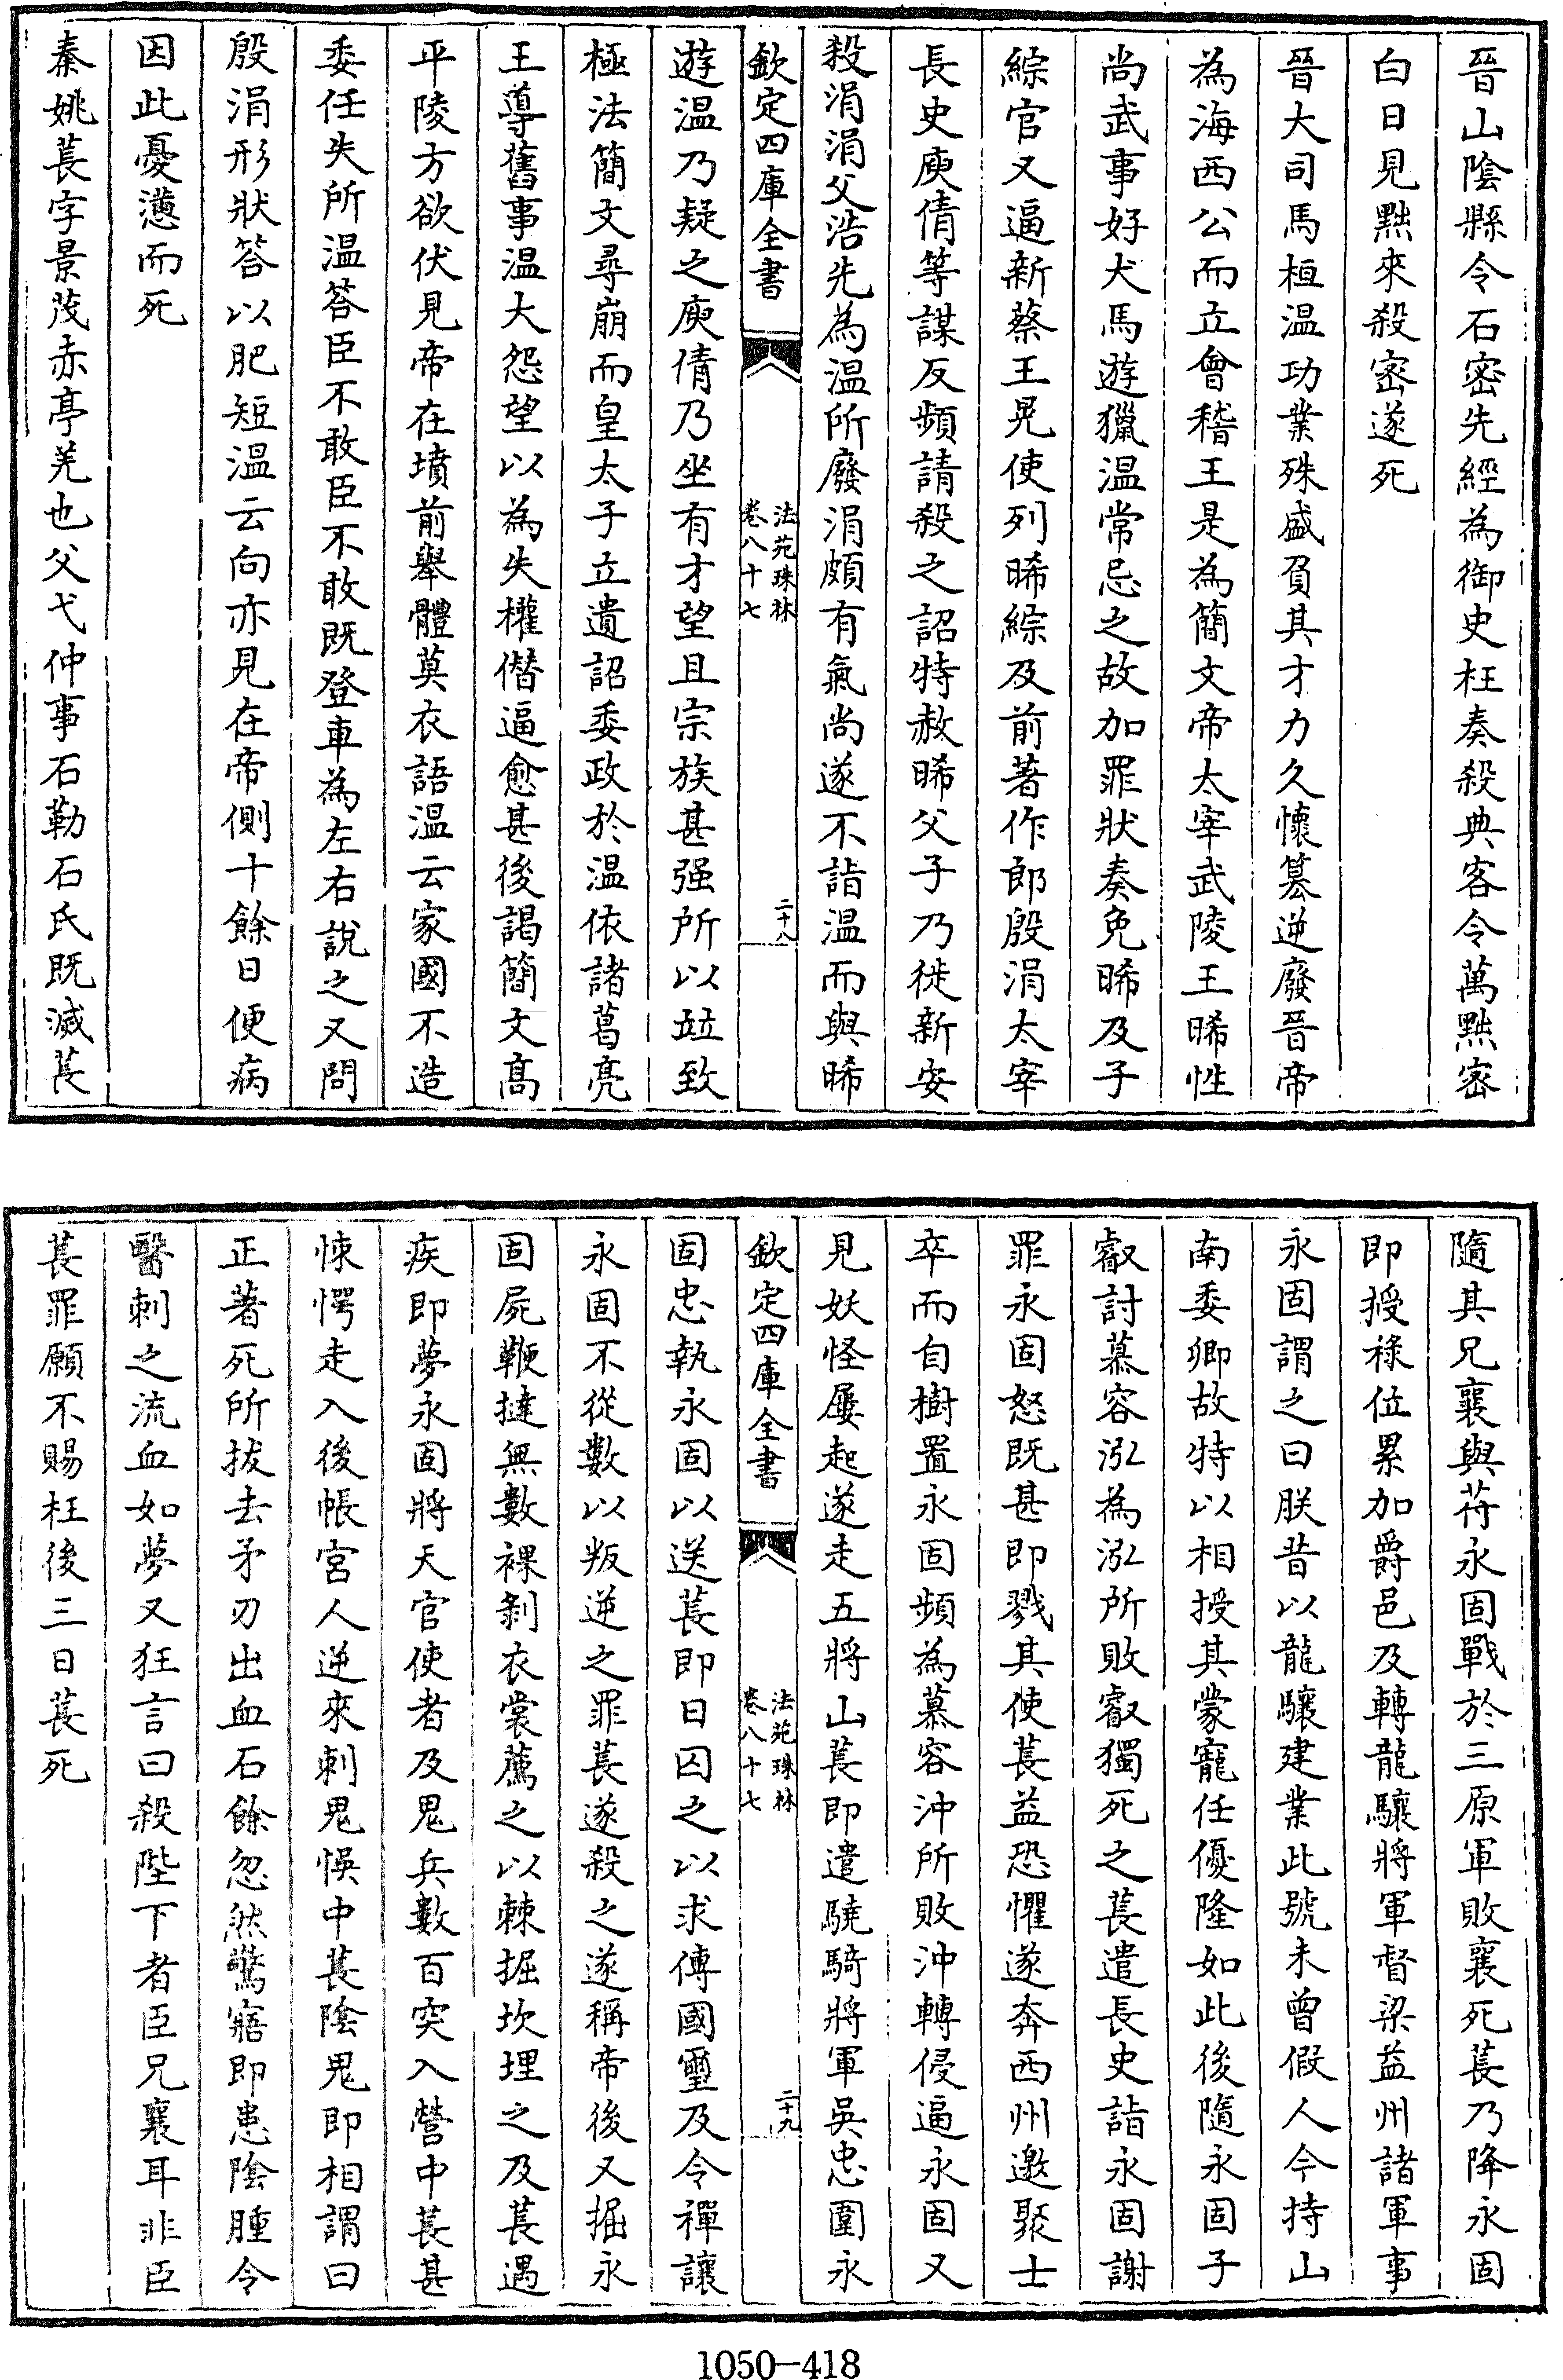 晉山陰縣令石密先經為御史枉奏殺典客令萬黙密
白日見黙來殺密遂死
晉大司馬桓温功業殊盛負其才力久懷簒逆廢晉帝
為海西公而立會稽王是為簡文帝太宰武陵王晞性
尚武事好犬馬遊獵温常忌之故加罪狀奏免晞及子
綜官又逼新蔡王晃使列晞綜及前著作郎殷涓太宰
長史庾倩等謀反頻請殺之詔特赦晞父子乃徙新安
殺涓涓父浩先為温所廢涓頗有氣尚遂不詣温而與晞
欽定四庫全書
法苑珠林
卷八十七
二十八
遊温乃疑之庾倩乃坐有才望且宗族甚强所以竝致
極法簡文尋崩而皇太子立遺詔委政於温依諸葛亮
王導舊事温大怨望以為失權僭逼愈甚後謁簡文髙
平陵方欲伏見帝在墳前舉體莫衣語温云家國不造
委任失所温答臣不敢臣不敢既登車為左右說之又問
殷涓形狀答以肥短温云向亦見在帝側十餘日便病
因此憂懣而死
秦姚萇字景茂赤亭羌也父弋仲事石勒石氏既滅萇
隨其兄襄與苻永固戰於三原軍敗襄死萇乃降永固
即授祿位累加爵邑及轉龍驤將軍督梁益州諸軍事
永固謂之曰朕昔以龍驤建業此號未曾假人今持山
南委卿故特以相授其蒙寵任優隆如此後隨永固子
叡討慕容泓為泓所敗叡獨死之萇遣長史詣永固謝
罪永固怒既甚即戮其使萇益恐懼遂奔西州邀聚士
卒而自樹置永固頻為慕容沖所敗沖轉侵逼永固又
見妖怪屢起遂走五將山萇即遣驍騎將軍吳忠圍永
欽定四庫全書
法苑珠林
卷八十七
二十九
固忠執永固以送萇即日囚之以求傳國璽及令禪讓
永固不從數以叛逆之罪萇遂殺之遂稱帝後又掘永
固屍鞭撻無數裸剝衣裳薦之以棘掘坎埋之及萇遇
疾即夢永固將天官使者及鬼兵數百突入營中萇甚
悚愕走入後帳宮人逆來刺鬼悞中萇陰鬼即相謂曰
正著死所拔去矛刃出血石餘忽然驚寤即患陰腫令
醫刺之流血如夢又狂言曰殺陛下者臣兄襄耳非臣
萇罪願不賜枉後三日萇死
1050-418